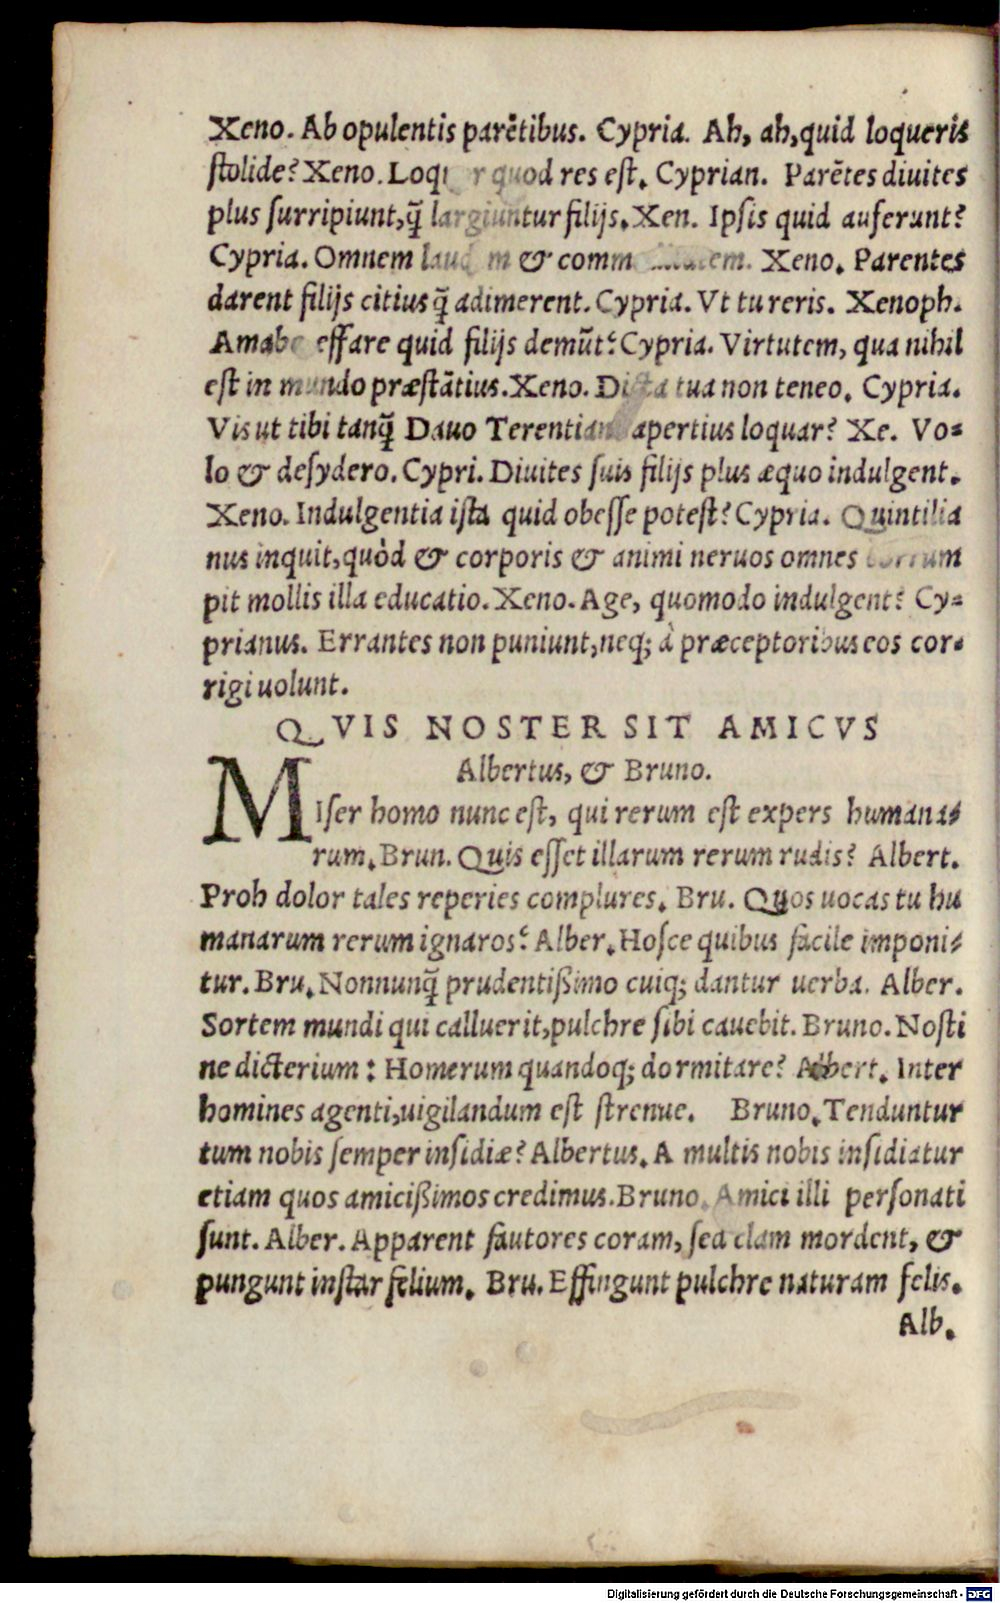 Xeno. Ab opulentis parētibus. Cypria. Ah, ah, quid loqueris
ſtolide? Xeno. quod res eſt. Cyprian. Parētes diuites
plus ſurripiunt, q̄ largiuntur filijs. Xen. Ipſis quid auferunt?
Cypria. Omnem & Xeno. Parentes
darent filijs citius q̄ adimerent. Cypria. Vt tu reris. Xenoph.
Amabo effare quid filijs demūt? Cypria. Virtutem, qua nihil
eſt in mundo præſtātius. Xeno. Dicta tua non teneo. Cypria.
Vis ut tibi tanq̄ Dauo Terentiano apertius loquar? Xe. Vo=
lo & deſydero. Cypri. Diuites ſuis filijs plus æquo indulgent.
Xeno. Indulgentia iſta quid obeſſe poteſt? Cypria. Quintilia
nus inquit, quòd & corporis & animi neruos omnes corrum
pit mollis illa educatio. Xeno. Age, quomodo indulgent? Cy=
prianus. Errantes non puniunt, neq; à præceptoribus eos cor=
rigi uolunt.
QVIS NOSTER SIT AMICVS
Albertus, & Bruno.
MIſer homo nunc eſt, qui rerum eſt expers humana=
rum. Brun. Quis eſſet illarum rerum rudis? Albert.
Proh dolor tales reperies complures. Bru. Quos uocas tu hu
manarum rerum ignaros? Alber. Hoſce quibus facile imponi=
tur. Bru. Nonnunq̄ prudentißimo cuiq; dantur uerba. Alber.
Sortem mundi qui calluerit, pulchre ſibi cauebit. Bruno. Noſti
ne dicterium: Homerum quandoq; dormitare? Albert. Inter
homines agenti, uigilandum eſt ſtrenue. Bruno. Tenduntur
tum nobis ſemper inſidiæ? Albertus. A multis nobis inſidiatur
etiam quos amicißimos credimus. Bruno. Amici illi perſonati
ſunt. Alber. Apparent fautores coram, ſed clam mordent, &
pungunt inſtar felium. Bru. Effingunt pulchre naturam felis.
Alb.
Digitalisierung gefördert durch die Deutsche Forschungsgemeinschaft - DFG